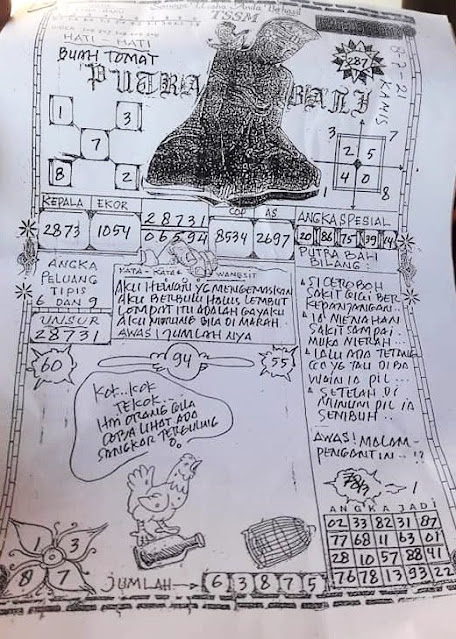 Semoga Usaha Anda Berhasil
TSSM
HATI - HATI
BUAH TOMAT
PUTRA BALI
287
8-7-21
KAMIS
1 3
7
8 2
3 7
2 5
4 0
1 8
KEPALA EKOR COP AS ANGKA SPESIAL
2873 1054 28731 8534 2697 20 86 75 39 14
06594
ANGKA
PELUANG
TIPIS
6 DAN 9
UNSUR
28731
KATA - KATA WANGSIT
AKU HEWAN YG MENGEMASKAN
AKU BERBULU HALUS LEMBUT
LOMPAT ITU ADALAH GAYAKU
AKU MURUNG BILA DI MARAH
AWAS ! JUMLAH NYA
PUTRA BALI
BILANG :
SI CEROBOH
SAKIT GIGI BER
KEPANJANGAN..
IA MENAHAN
SAKIT SAMPAI
MUKA MERAH...
LALU ADA TETANG
GA YG TAU DI BA
WAIN IA PIL...
SETELAH DI
MINUM PIL IA
SEMBUH..
AWAS! MALAM-
PENGANTIN..!?
60 94 55
Kok..kok
TEKOK...
HM ORANG GILA
COBA LIHAT ADA
SANGKAR TERGULING
ANGKA JADI
02 33 82 31 87
77 68 11 63 01
28 10 57 88 41
76 78 13 93 22
1 3
8 7
JUMLAH → 6 3 8 7 5